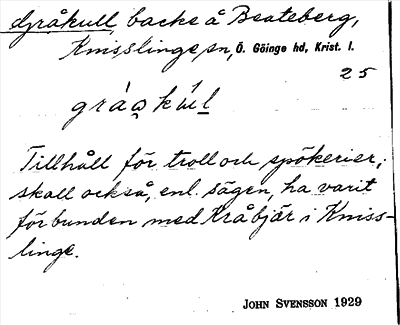 Gråkull, backe å Beateberg,
Knisslinge sn, Ö. Göinge hd, Krist. l.
25
gråa̠kul̠
Tillhåll för troll och spökerier;
skall också, enl. sägen, ha varit
förbunden med Kråbjär i Kniss-
linge.
JOHN SVENSSON 1929